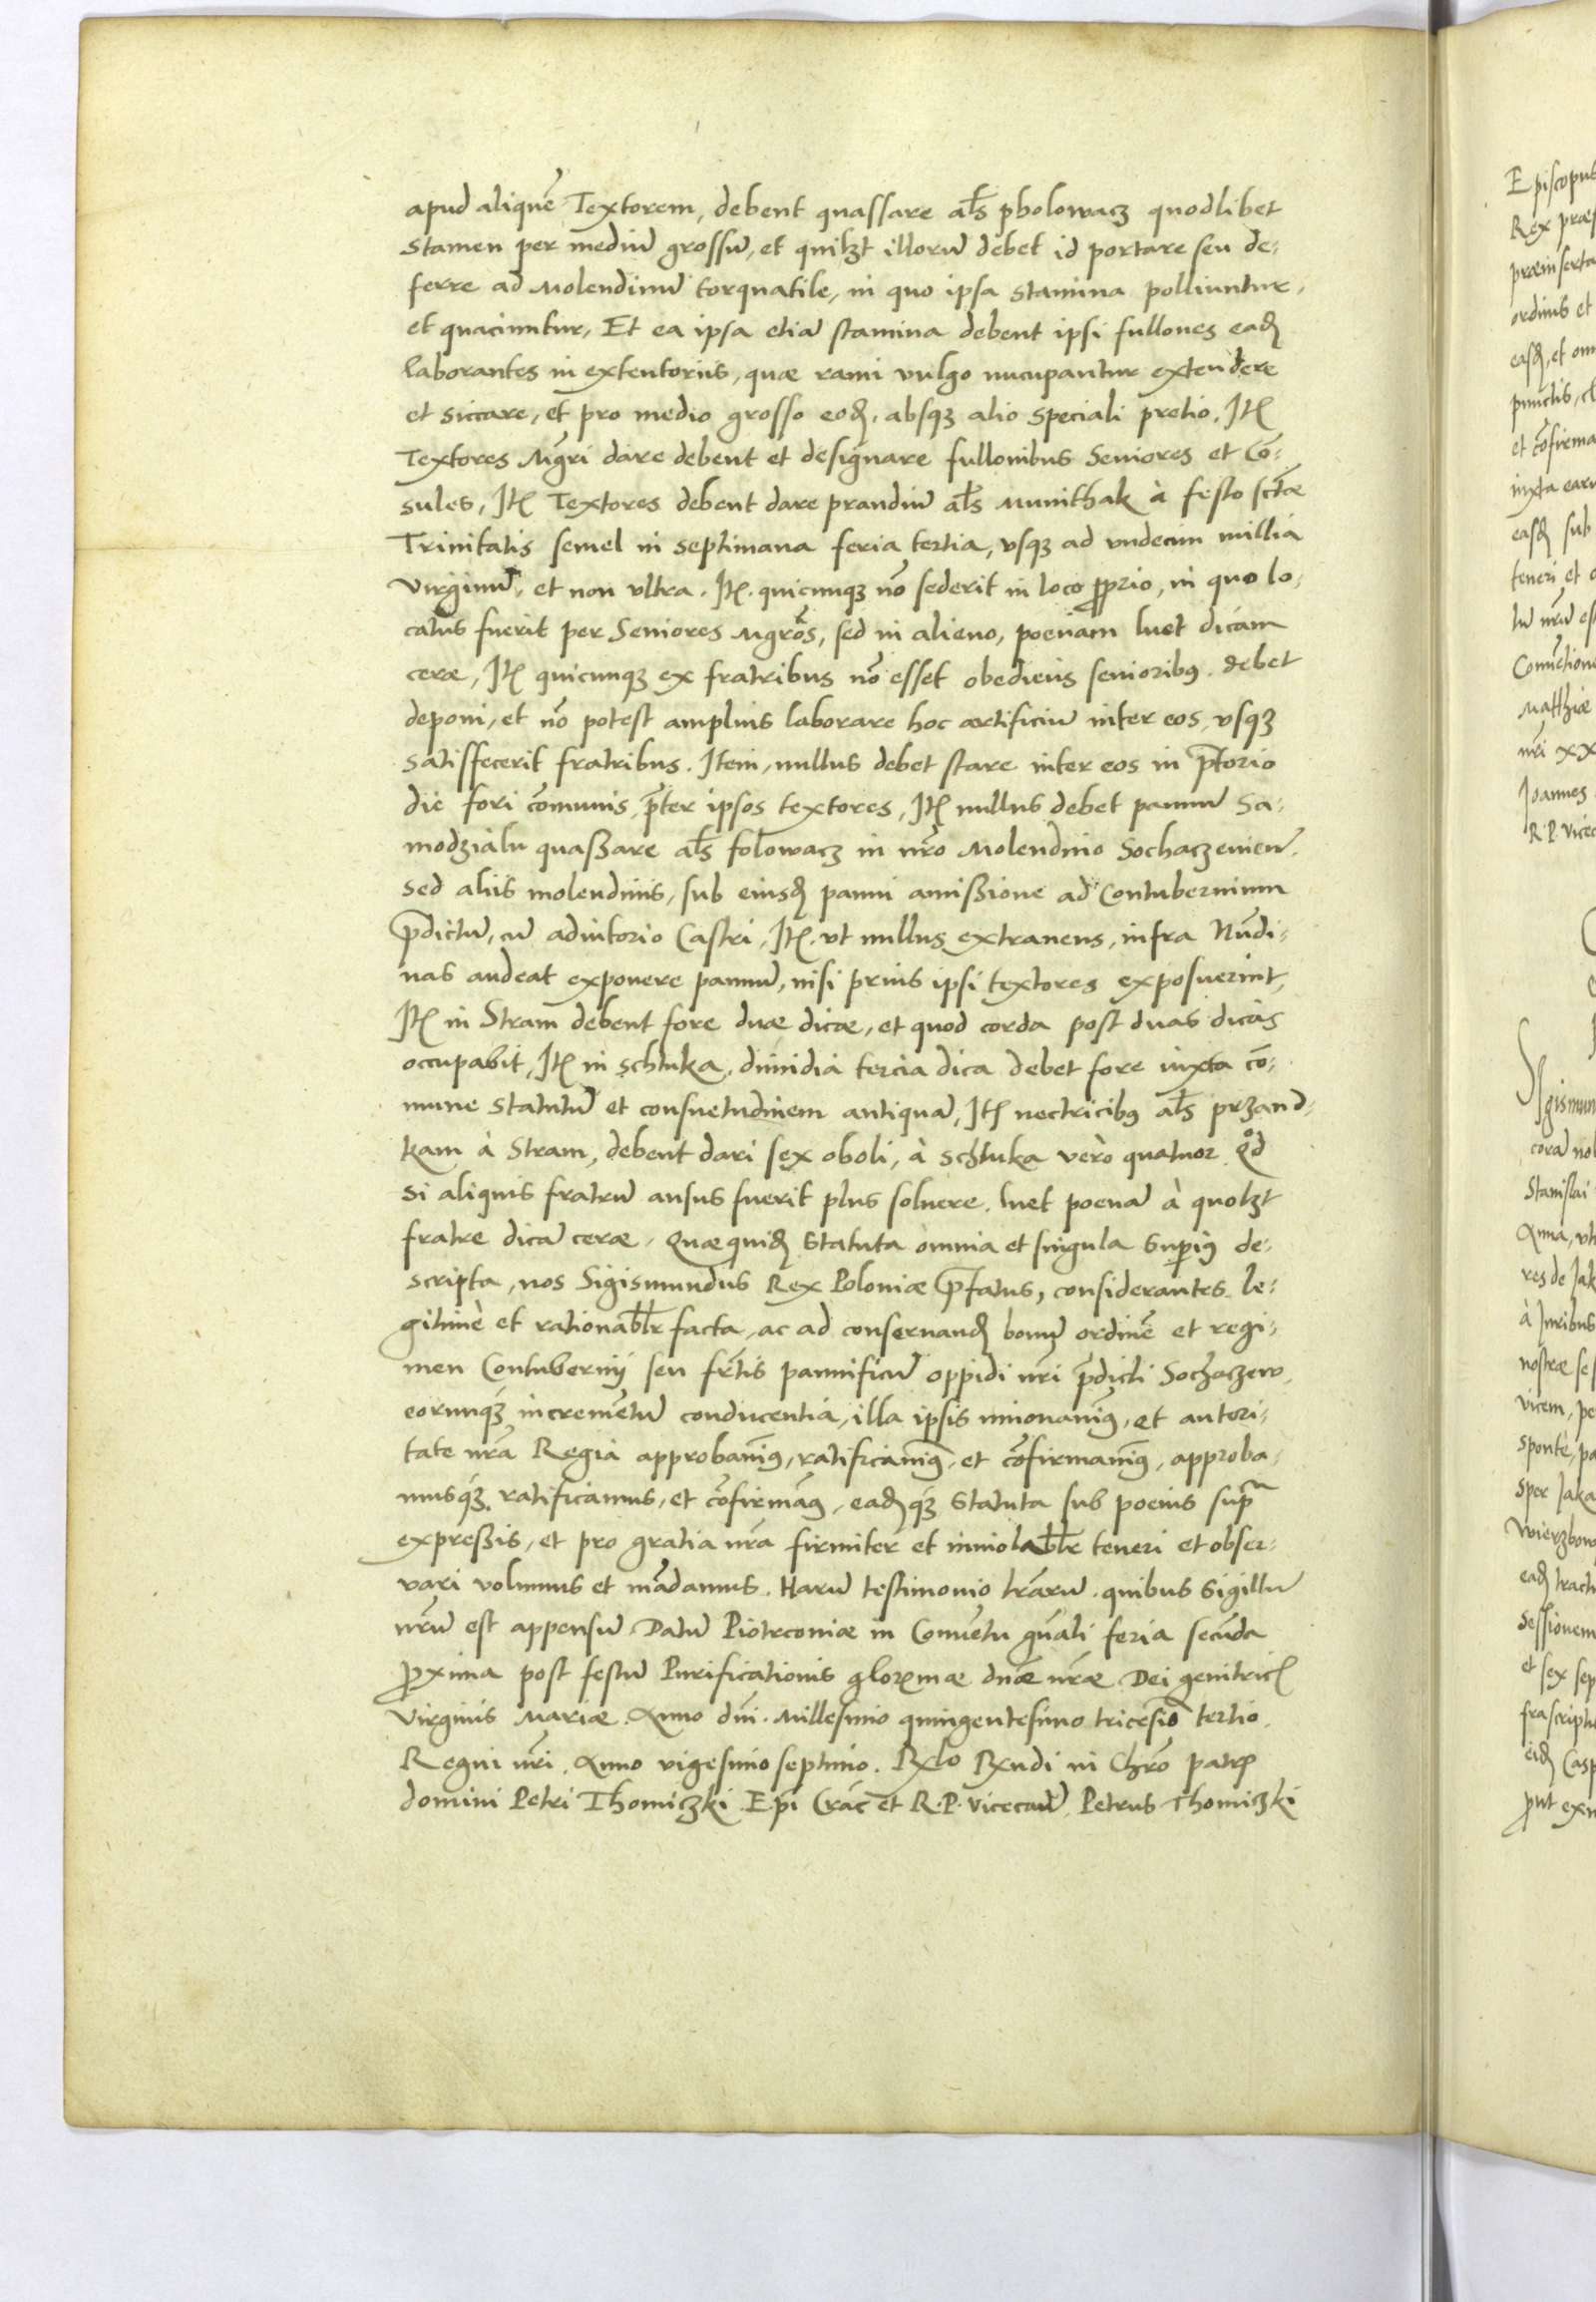 apud aliquẽ Textorem, debent quassare al̃s pholowacz quodlibet
stamen per mediũ grossũ, et quilꝫt illorũ debet id portare seu de-
ferre ad Molendinũ torquatile, in quo ipsa stamina poliuntur,
et quaciuntur, Et ea ipsa etiã stamina debent ipsi fullones eadẽ
laborantes in extentoriis, quæ rami vulgo nucupantur extendere
et siccare, et pro medio grosso eodẽ, absqꝫ alio speciali pretio. Itẽ
Textores Mgr̃i dare debent et designare fullonibus Seniores et Cõ-
sules, Itẽ Textores debent dare prandiũ al̃s Munithak à festo sctæ̃
Trinitatis semel in septimana feria tertia, vsqꝫ ad vndecim millia
Virginũ, et non vltra. Itẽ. quicunqꝫ nõ sederit in loco ꝓprio, in quo lo-
catus fuerit per Seniores Mgrõs, sed in alieno, poenam luet dicam
ceræ, Itẽ quicunqꝫ ex fratribus nõ esset obediens senioribꝰ. debet
deponi, et nõ potest amplius laborare hoc artificiũ inter eos, vsqꝫ
satisfecerit fratribus. Item, nullus debet stare inter eos in p̃torio
die fori cõmunis, p̃ter ipsos textores, Itẽ nullus debet pannũ Sa-
modzialu quaßare al̃s folowacz in nr̃o Molendino Sochaczewien̄.
sed aliis molendinis, sub eiusdẽ panni amißione ad Contubernium
p̃dictũ, cũ adiutorio Castri, Itẽ. vt nullus extraneus, infra Nũdi-
nas audeat exponere pannũ, nisi prius ipsi textores exposuerint,
Itẽ in Stram debent fore duæ dicæ, et quod corda post duas dicas
occupabit, Itẽ in schtuka, dimidia tercia dica debet fore iuxta cõ-
mune statutũ et consuetudinem antiquã, Itẽ nectricibꝰ al̃s przand-
kam à Stram, debent dari sex oboli, à schtuka verò quatuor. Qͦd
si aliquis fratrũ ausus fuerit plus soluere. luet poenã à quolꝫt
fratre dicã ceræ. Quæquidẽ statuta omnia et singula supriꝰ de-
scripta, nos Sigismundus Rex Poloniæ p̃fatus, considerantes le-
gitimè et rationabl̃r facta, ac ad conseruandẽ bonũ ordinẽ et regi-
men Contubernij seu fr̃tis pannificũ oppidi nr̃i p̃dicti Sochaczew,
eorumqꝫ incremẽtũ conducentia, illa ipsis innouamꝰ, et autori-
tate nr̃a Regia approbamꝰ, ratificamꝰ, et cõfirmamꝰ, approba-
musqꝫ, ratificamus, et cõfirmãꝰ, eadẽqꝫ statuta sub poenis supᵃ
expreßis, et pro gratia nr̃a firmiter et inuiolabl̃r teneri et obser-
vari volumus et mãdamus. Harũ testimonio lr̃arũ. quibus sigillũ
nr̃um est appensũ. Datũ Piotrconiæ in Conuẽtu gñali feria secũda
ꝓxima post festũ Purificationis glorxmæ dnæ̃ nr̃æ Dei genitricẽ
Virginis Mariæ. Anno dñi. Millesimo quingentesimo tricesĩo tertio.
Regni nr̃i. Anno vigesimo septimo. Rxlo Rxndi in Chrõ patrẽ
domini Petri Thomiczki Ep̃i Crac̃ et R. P. Vicecañ. Petrus Thomiczki
Episcopus
Rex præf
præinserta
ordinis et
easdẽ, et om
punctis, cl
et cõfirma
iuxta earu
easdẽ sub
teneri et o
lũ nr̃ũ es
Conuẽtione
Matthiæ
nr̃i XX
Joannes
R. P. Vicec
Sigismun
corã nob
Stanislai
Anna, vti
res de Jak
à Juribus
nostræ se
vicem, pe
spontè, pa
sper Jaka
Wierzbow
eadẽ tractu
sessionem
et sex sep
frascriptu
eidẽ Casp
prout exn